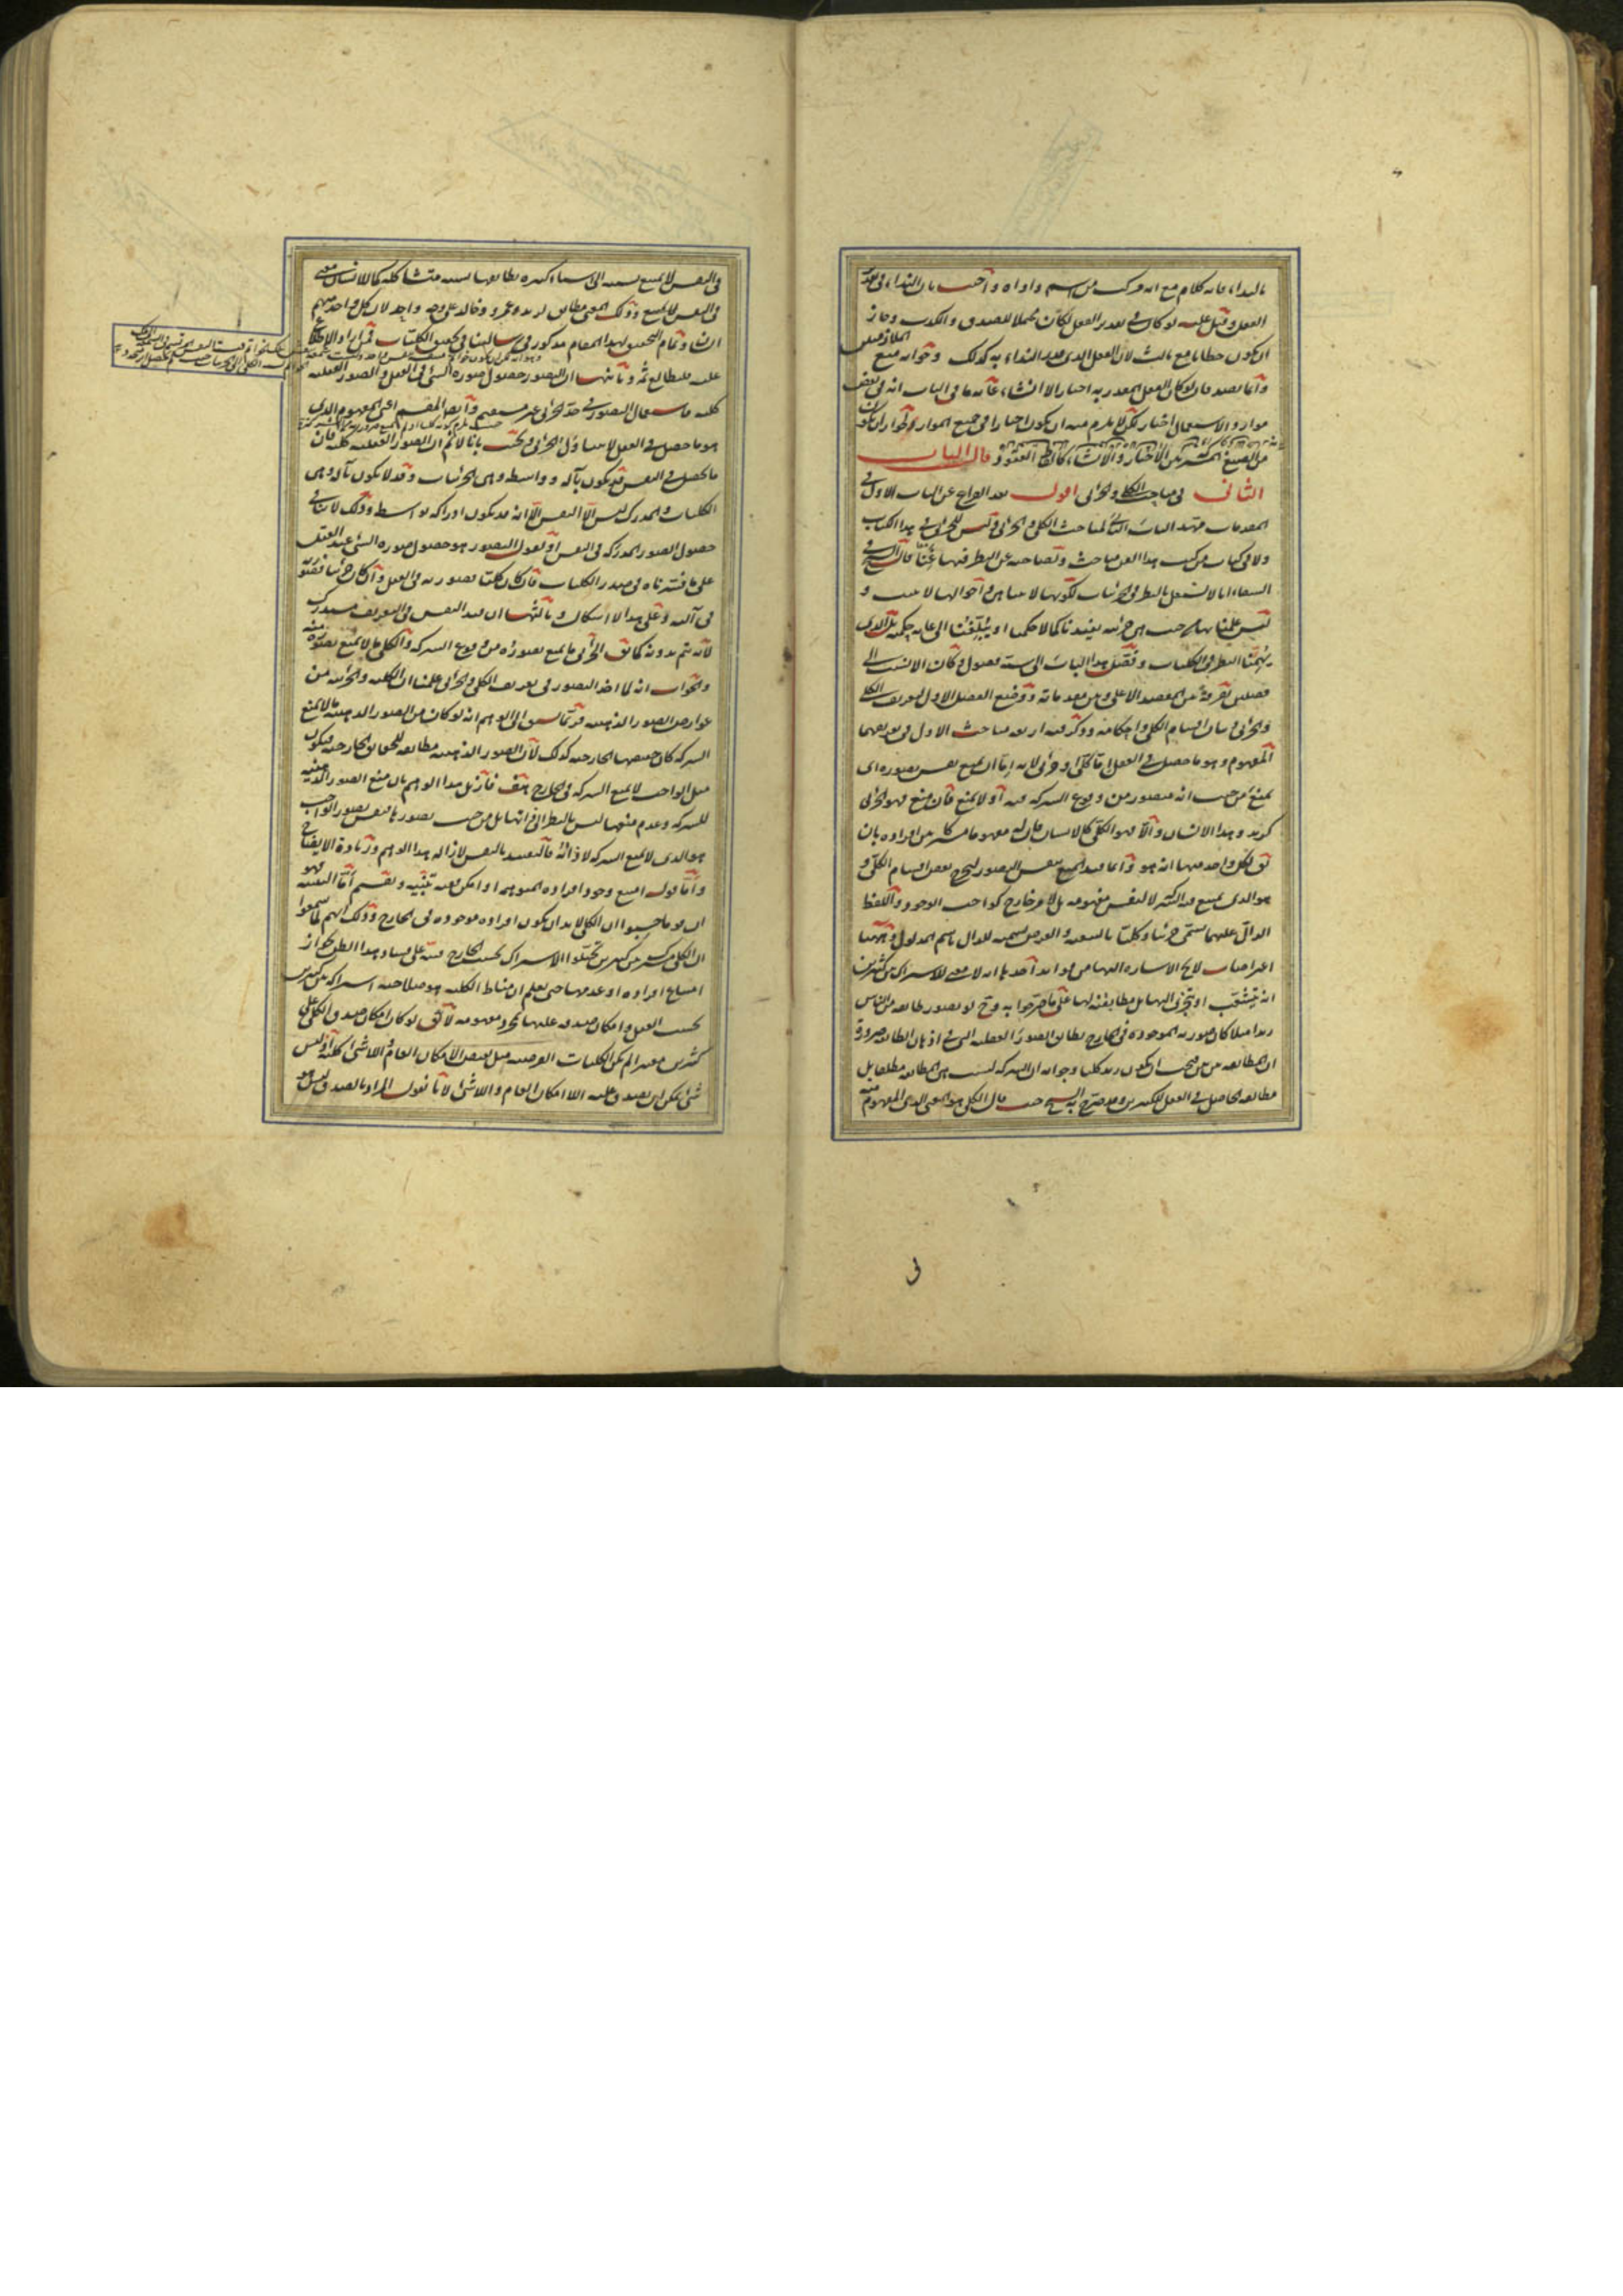 بالنداء فانه كلام مع انه مركب من اسم واداة واجيب بان النداء فى تقدير
الفعل وقيل عليه لو كان فى تقدير الفعل لكان محتملا للصدق والكذب وجاز
ان يكون خطابا مع ثالث لان الفعل الذى قدر النداء به كذلك وجوابه منع الملازمتين
وانما يصدق ان لو كان الفعل المقدر به اخبارا لا انشاء غاية ما فى الباب انه فى بعض
موارد الاستعمال اخبار لكن لا يلزم منه ان يكون اخبارا فى جميع الموارد لجواز ان يكون
من الصيغ المشتركة بين الاخبار والانشاء كالفاظ العقود قال الباب
الثانى فى مباحث الكلى والجزئى اقول بعد الفراغ عن الباب الاول فى
المقدمات مهد الباب الثانى لمباحث الكلى والجزئى وليس للجزئى فى هذا الكتاب
ولا فى كتاب من كتب هذا الفن مباحث وتصاحبه عن النظر فيها قال الشيخ فى
الشفاء انا لا نشتغل بالنظر فى الجزئيات لكونها لا تتناهى واحوالها لا تثبت و
ليس علمنا بها من حيث هى جزئية يفيدنا كمالا حكميا او يبلغنا الى غاية حكمية بل الذى
يهمنا النظر فى الكليات وفصل هذا الباب الى ستة فصول وكان الانسب الى
فصلين تفرقة بين المقصد الاعلى وبين مقدماته ووضع الفصل الاول لتعريف الكلى
والجزئى وبيان اقسام الكلى واحكامه وذكر فيه اربعة مباحث الاول فى تعريفهما
المفهوم وهو ما حصل فى العقل اما كلى او جزئى لانه اما ان يمنع نفس تصوره اى
يمنع من حيث انه متصور من وقوع الشركة فيه او لا يمنع فان منع فهو الجزئى
كزيد وهذا الانسان والا فهو الكلى كالانسان فان له مفهوما مشتركا بين افراده بان
يق لكل واحد منها انه هو وانما قيد المنع بنفس التصور ليخرج بعض اقسام الكلى و
هو الذى يمنع من الشركة لا لنفس مفهومه بل لامر خارج كواجب الوجود واللفظ
الدال عليهما يسمى جزئيا وكليا بالتبعية والعرض تسمية للدال باسم المدلول وههنا
اعتراضات لايح الاشارة اليها من فوائد احدها انه لا معنى للاشتراك بين كثيرين
انه يتشعب او يتجزى اليها بل مطابقته لها على ما صرحوا به وح لو تصور طايفة من الناس
زيدا مثلا كان صورته الموجودة فى الخارج تطابق الصور العقلية التى فى اذهان الطايفة ضرورة
ان المطابقة من فيجب ان يكون زيد كليا وجوابه ان الشركة ليست هى المطابقة مطلقا بل
مطابقة الحاصل فى العقل لكثيرين وقد صرح به الشيخ حيث قال الكلى هو المعنى الذى المفهوم منه
فى النفس لا يمتنع نسبته الى اشياء كثيرة تطابقها نسبة متشاكلة كالانسان معنى
فى النفس لا يمتنع وذلك المعنى مطابق لزيد وعمرو وخالد على وجه واحد لان كل واحد منهم
انسان وتمام التحقيق لهذا المقام مذكور فى رسالتنا فى تحقيق الكليات فمن اراد الاطلاع
عليه فليطالع ثمه وثانيها ان التصور حصول صورة الشئ فى العقل والصور العقلية
كلية فاستعمال التصور فى حد الجزئى غير مستقيم وايضا المقسم اعنى المفهوم الذى
هو ما حصل فى العقل لا يتناول الجزئى ويجب بانا لا نم ان الصور العقلية كلية فان
ما يحصل فى النفس قد يكون بآلة وواسطة وهى الجزئيات وقد لا يكون بآلة وهى
الكليات والمدرك ليس الا النفس الا انه قد يكون ادراكه بواسطة وذلك لا ينافى
حصول الصور المدركة فى النفس او نقول التصور هو حصول صورة الشئ عند العقل
على ما فسرناه فى صدر الكليات فان كان كليا فصورته فى العقل وان كان جزئيا فصورته
فى آلته وعلى هذا لا اشكال وثالثها ان قيد النفس فى التعريف مستدرك
لانه يتم بدونه كما يق الجزئى ما يمنع تصوره من وقوع الشركة والكلى ما لا يمنع تصوره منه
والجواب انه لما اخذ التصور فى تعريف الكلى والجزئى علمنا ان الكلية والجزئية من
عوارض الصور الذهنية فربما يسبق الى الوهم انه لو كان من الصور الذهنية ما لا يمنع
الشركة كان حقيقتها الخارجة كذلك لان الصور الذهنية مطابقة للحقايق الخارجية فيكون
مثل الواجب لا يمنع الشركة فى الخارج هف فازيل هذا الوهم بان منع الصور الذهنية
للشركة وعدم منعها ليس بالنظر الى ذاتها بل من حيث تصورها فنفس تصور الواجب
هو الذى لا يمنع الشركة لا ذاته فالتقييد بالنفس لازالة هذا الوهم وزيادة الايضاح
واما قوله امتنع وجود افراده المتوهمة او امكن ففيه تنبيه وتقسيم اما التنبيه فهو
ان قوما حسبوا ان الكلى لا بد ان يكون افراده موجودة فى الخارج وذلك انهم لما سمعوا
ان الكلى مشترك بين كثيرين تخيلوا الاشتراك بحسب الخارج فنبه على فساد هذا الظن بجواز
امتناع افراده او عدمها حتى يعلم ان مناط الكلية هو صلاحية اشتراكه بين كثيرين
بحسب العقل وامكان صدقه عليها بمجرد مفهومه لا يق لو كان امكان صدق الكلى على
كثيرين معتبرا لم يكن الكليات الفرضية مثل نقيض الامكان العام واللاشئ كلية اذ ليس
شئ يمكن ان يصدق عليه اللاامكان العام واللاشئ لانا نقول المراد بالصدق ليس هو